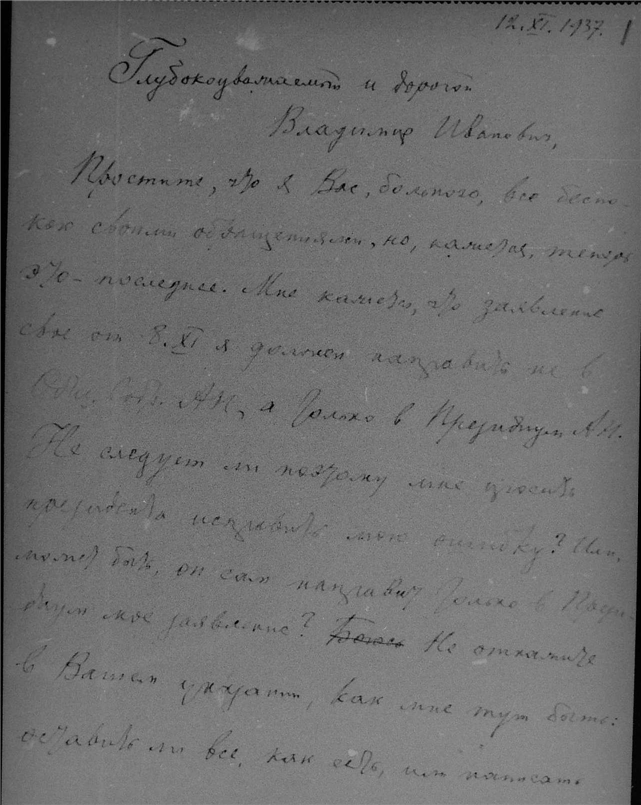 12.XI.1937. 1
Глубокоуважаемый и дорогой
Владимир Иванович,
Простите, что я Вас, больного, все беспо-
кою своими обращениями, но, кажется, теперь
это - последнее. Мне кажется, что заявление
свое от 8.XI я должен направить не в
Общ. Собр. АН, а только в Президиум АН.
Не следует ли поэтому мне просить
президента исправить мою ошибку? Или,
может быть, он сам направит только в Прези-
диум мое заявление? Боюсь Не откажите
в Вашем указании, как мне тут быть:
оставить ли все, как есть, или написать